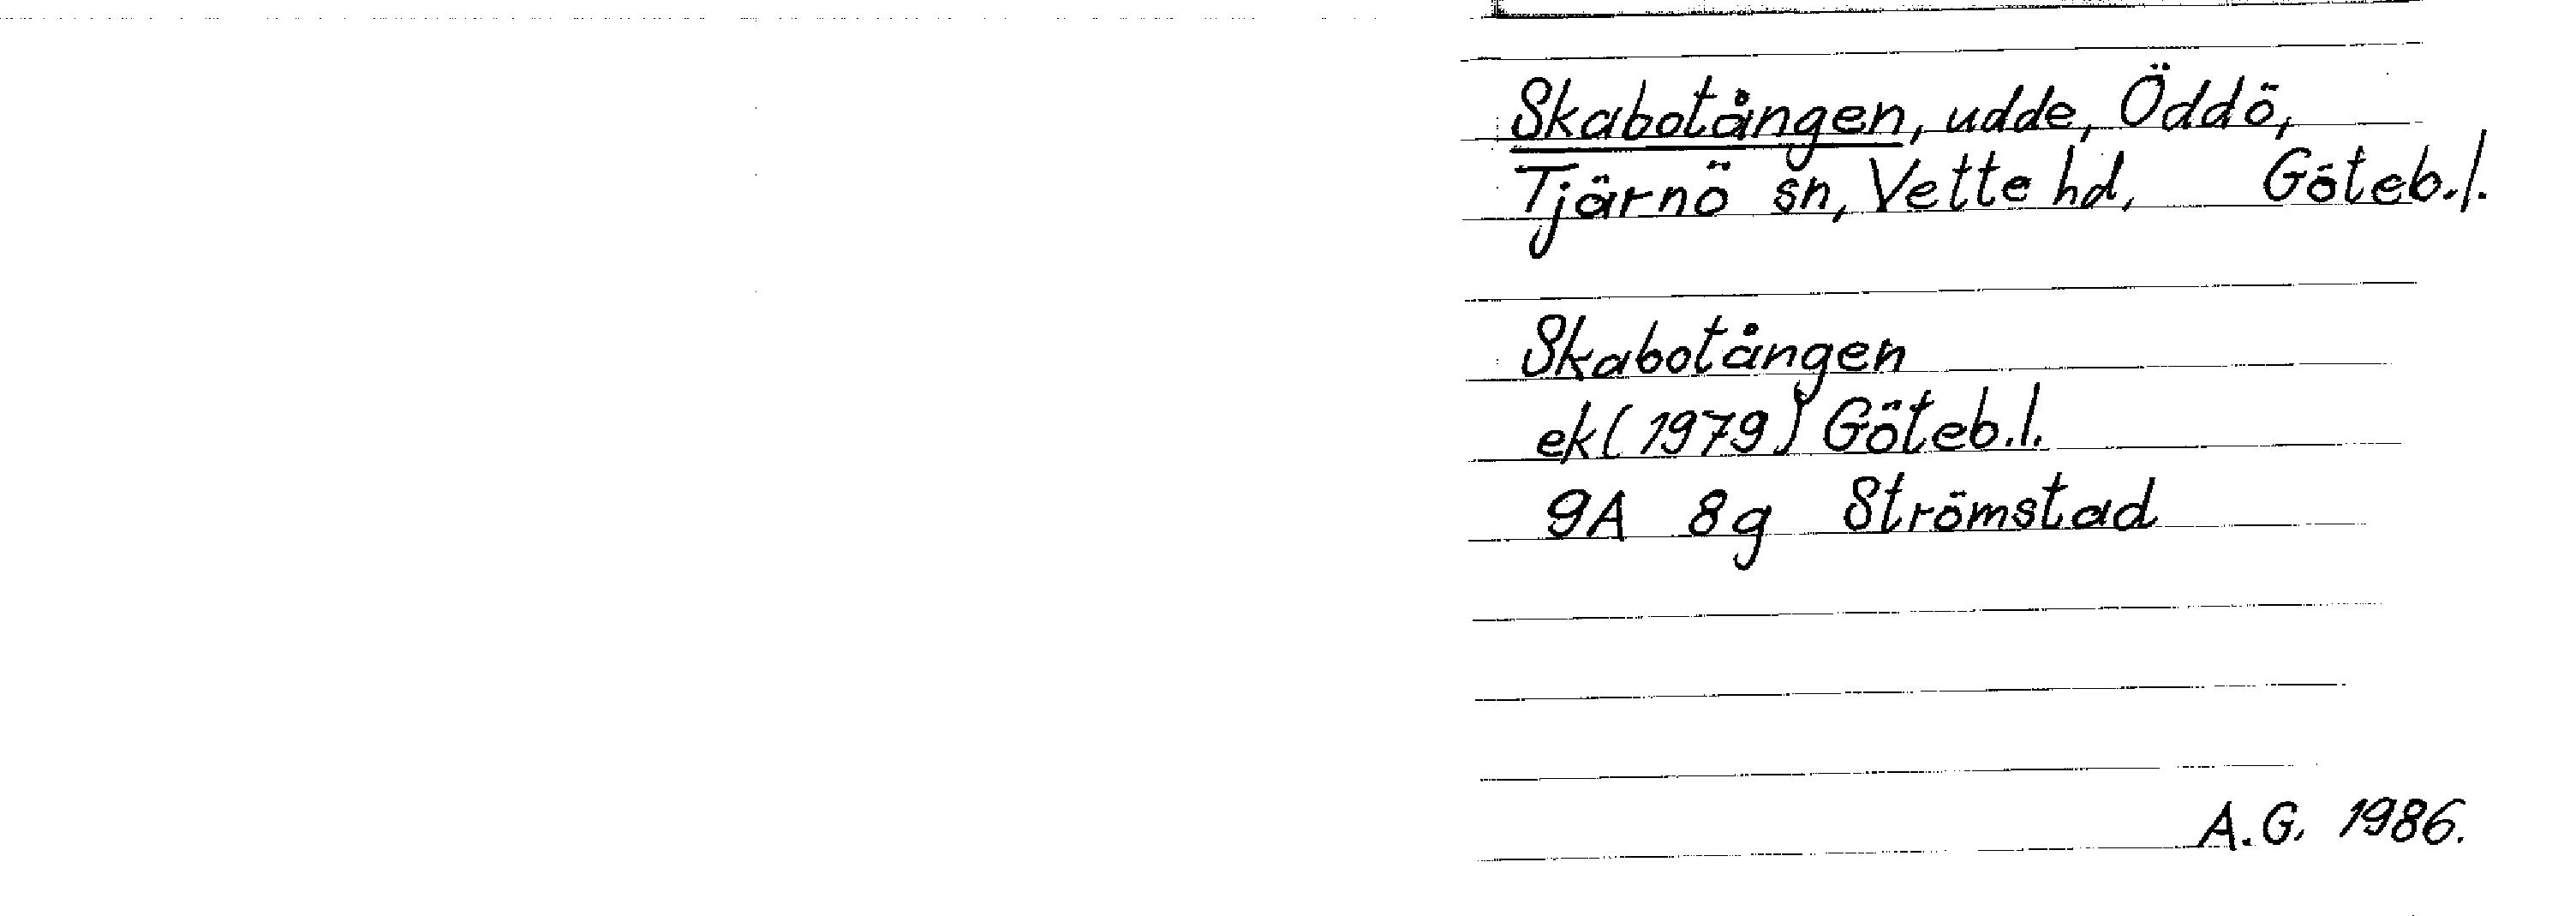 Skabotången, udde, Öddö,
Tjärnö sn, Vette hd, Göteb.l.
Skabotången
ek (1979) Göteb.l.
9A 8g Strömstad
A.G. 1986.